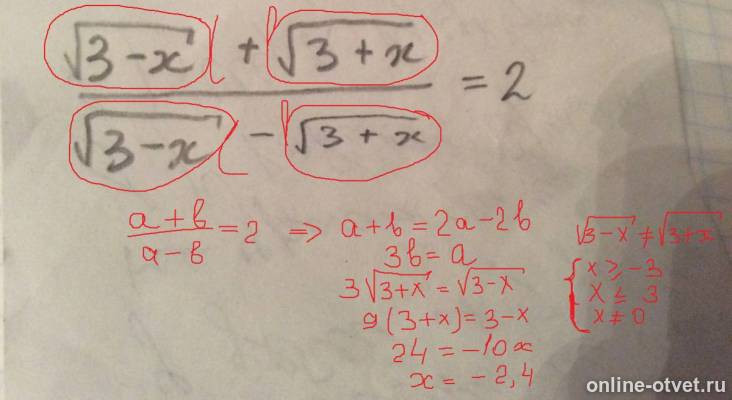 (√(3-x) + √(3+x)) / (√(3-x) - √(3+x)) = 2
(a+b)/(a-b) = 2 => a+b = 2a-2b
3b = a
3√(3+x) = √(3-x)
9(3+x) = 3-x
24 = -10x
x = -2,4
√(3-x) ≠ √(3+x)
{ x ≥ -3
x ≤ 3
x ≠ 0
online-otvet.ru